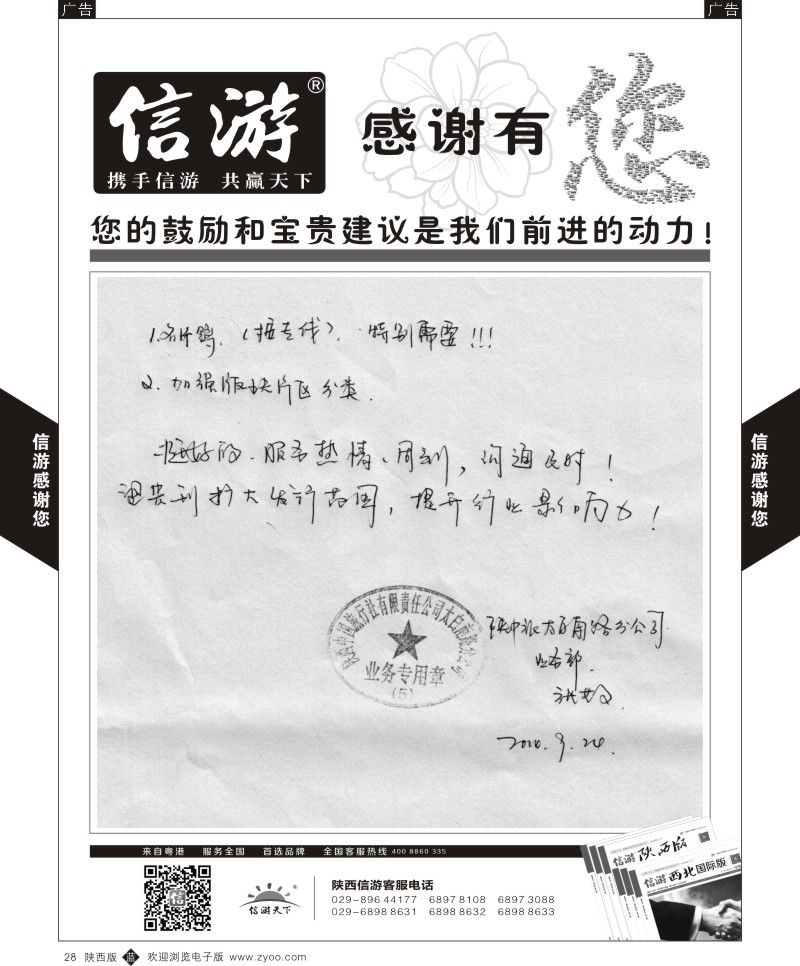 广告
广告
信游®
携手信游 共赢天下
感谢有
您
您的鼓励和宝贵建议是我们前进的动力!
1.名片驿.(接专线).特别需要!!!
2.加强版块片区分类.
挺好的.服务热情、周到,沟通及时!
望贵刊扩大发行范围,提升行业影响力!
陕西中国旅行社有限责任公司太白南路分公司
业务专用章
(5)
陕中旅太白南路分公司.
业务部.
2010.9.24.
信游感谢您
信游感谢您
来自粤港 服务全国 首选品牌 全国客服热线 400 8860 335
信游
信游天下®
陕西信游客服电话
029-896 44177 6897 8108 6897 3088
029-6898 8631 6898 8632 6898 8633
信游 陕西版
信游 西北国际版
28 陕西版 蓝 欢迎浏览电子版 www.zyoo.com